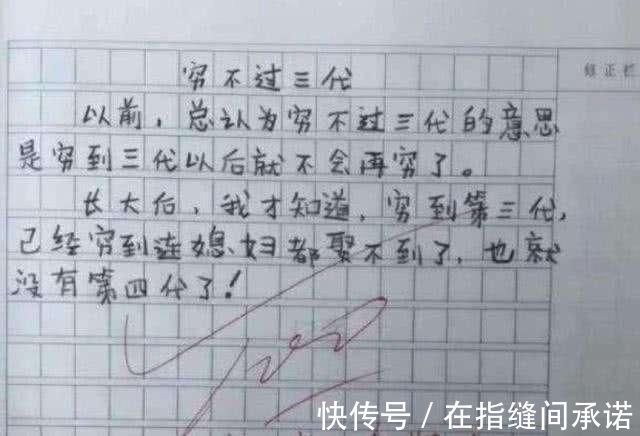 穷不过三代
修正栏
以前，总认为穷不过三代的意思
是穷到三代以后就不会再穷了。
长大后，我才知道，穷到第三代，
已经穷到连媳妇都娶不到了，也就
没有第四代了！
100
快传号 / 在指缝间承诺